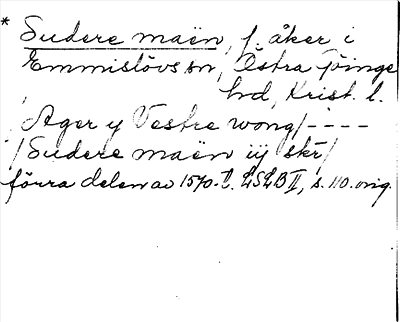 * Sudere maën, f. åker i
Emmislövs sn, Östra Göinge
hd, Krist. l.
/Ager y Vestre wong/----
/Sudere maën iij skr/
förra delen av 1570-t. LSLB II, s. 110. orig.